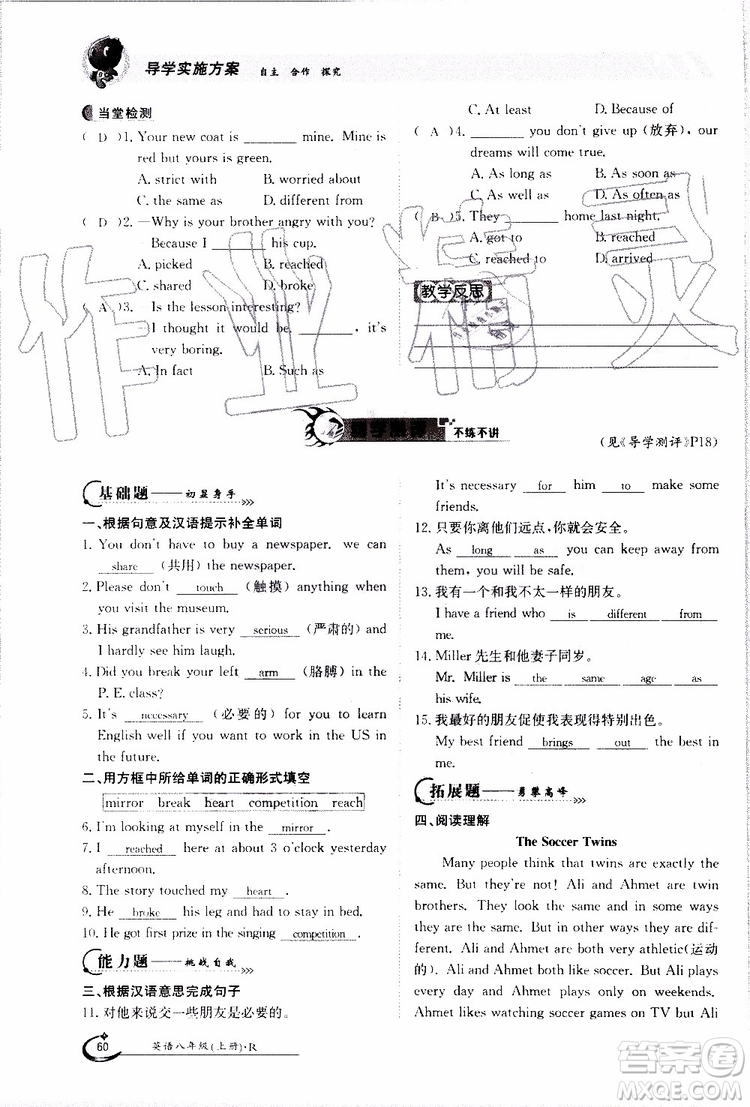 导学实施方案 自主 合作 探究
当堂检测
( D )1. Your new coat is ________ mine. Mine is
red but yours is green.
A. strict with B. worried about
C. the same as D. different from
( D )2. —Why is your brother angry with you?
Because I ________ his cup.
A. picked B. reached
C. shared D. broke
( A )3. Is the lesson interesting?
I thought it would be. ________, it's
very boring.
A. In fact B. Such as
C. At least D. Because of
( A )4. ________ you don't give up (放弃), our
dreams will come true.
A. As long as B. As well as
C. As soon as D. As often as
( B )5. They ________ home last night.
A. got to B. reached
C. reached to D. arrived
教学反思
不练不讲
(见《导学测评》P18)
基础题——初显身手
一、根据句意及汉语提示补全单词
1. You don't have to buy a newspaper. we can
share (共用) the newspaper.
2. Please don't touch (触摸) anything when
you visit the museum.
3. His grandfather is very serious (严肃的) and
I hardly see him laugh.
4. Did you break your left arm (胳膊) in the
P. E. class?
5. It's necessary (必要的) for you to learn
English well if you want to work in the US in
the future.
二、用方框中所给单词的正确形式填空
mirror break heart competition reach
6. I'm looking at myself in the mirror .
7. I reached here at about 3 o'clock yesterday
afternoon.
8. The story touched my heart .
9. He broke his leg and had to stay in bed.
10. He got first prize in the singing competition .
能力题——挑战自我
三、根据汉语意思完成句子
11. 对他来说交一些朋友是必要的。
It's necessary for him to make some
friends.
12. 只要你离他们远点,你就会安全。
As long as you can keep away from
them, you will be safe.
13. 我有一个和我不太一样的朋友。
I have a friend who is different from
me.
14. Miller 先生和他妻子同岁。
Mr. Miller is the same age as
his wife.
15. 我最好的朋友促使我表现得特别出色。
My best friend brings out the best in
me.
拓展题——勇攀高峰
四、阅读理解
The Soccer Twins
Many people think that twins are exactly the
same. But they're not! Ali and Ahmet are twin
brothers. They look the same and in some ways
they are the same, but in other ways they are dif-
ferent. Ali and Ahmet are both very athletic(运动
的). Ali and Ahmet both like soccer. But Ali plays
soccer every day and Ahmet only plays on weekends.
Ahmet likes watching soccer games on TV but Ali
60 英语八年级(上册)·R
作业精灵
MXQE.COM